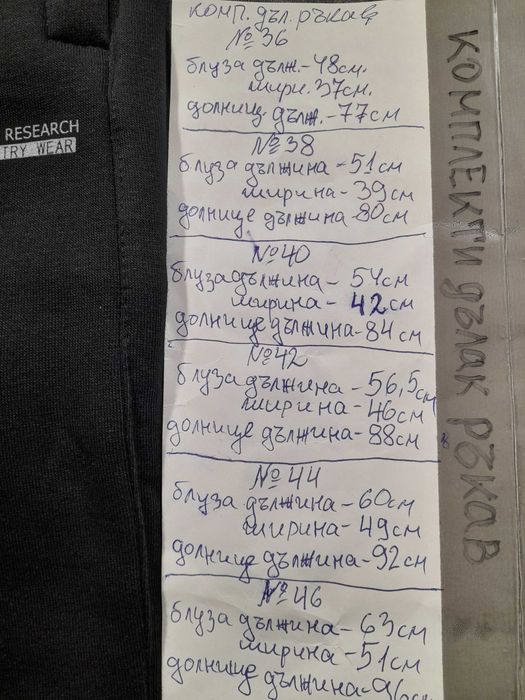 RESEARCH
TRY WEAR
комп. дъл. ръкав
№ 36
блуза дълж.-48см.
шири. 37см.
долнище дълж.-77см
№ 38
блуза дължина-51см
ширина-39см
долнище дължина-80см
№40
блуза дължина-54см
ширина-42см
долнище дължина-84см
№42
блуза дължина-56,5см
ширина-46см
долнище дължина-88см
№ 44
блуза дължина-60см
ширина-49см
долнище дължина-92см
№ 46
блуза дължина-63см
ширина-51см
долнище дължина-96см
КОМПЛЕКТИ дълак РЪКАВ